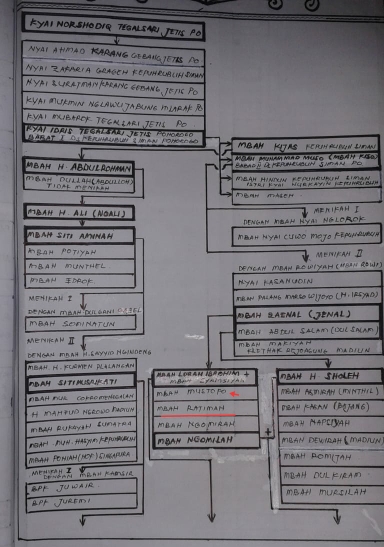 KYAI NORSHODIQ TEGALSARI JETIS PO
NYAI AHMAD KARANG GEBANG JETIS PO
NYAI ZAKARIA GRAGEH KEPUHRUBUH SIMAN
NYAI SURATMAN KARANG GEBANG JETIS PO
KYAI MUKMIN NGLAWU JABUNG MLARAK PO
KYAI MUBAROK TEGALSARI JETIS PO
KYAI IDRIS TEGALSARI JETIS PONOROGO
BABAT I DS KEPUHRUBUH SIMAN PONOROGO
MBAH H. ABDULROHMAN
MBAH DULLAH (ABDULLOH)
TIDAK MENIKAH
MBAH H ALI (NGALI)
MBAH SITI AMINAH
MBAH POTIYAH
MBAH MUNTHEL
MBAH IDROK
MENIKAH I
DENGAN MBAH DULGANI
MBAH SOMINATUN
MENIKAH II
DENGAN MBAH SAYYID NGUNDENG
MBAH H. FURMEN
MBAH SITI
MBAH NUR
H MAHFUD NGROWO MADIUN
MBAH RUKAYAH SUMATRA
MBAH MUH. HASYIM KEPUHRUBUH
MBAH PONIAH (HOP) SINGAPURA
MENIKAH I
DENGAN MBAH KAMSIR
BPK JUWAIR
BPK JUREMI
MBAH KEPUHRUBUH SIMAN
MBAH MUHAMMAD MUSO
KEPUHRUBUH SIMAN PO
MBAH HINDUN KEPUHRUBUH SIMAN
ISTRI KYAI KEPUHRUBUH
MBAH MASEH
MENIKAH I
DENGAN MBAH NYAI NGLOROK
MBAH NYAI CUWO MOJO KEPUHRUBUH
MENIKAH II
DENGAN MBAH ROWIYAH
NYAI KASANUDIN
MBAH PALANG MARSOWIJOYO (H. IRSYAD)
MBAH ZAENAL (JENAL)
MBAH ABDUL SALAM (DULSALAM)
MBAH MARIYAH
MADIUN
MBAH LURAH IBROHIM +
MBAH
MBAH MUSTOPO
MBAH RATIMAN
MBAH NGOMIRAH
MBAH NGOMILAH
MBAH H SHOLEH
MBAH ASMIRAH (MINTHIL)
MBAH KASAN
MBAH NAPSIYAH
MBAH DEWIRAH (MADIUN)
MBAH ROMIJAH
MBAH DULKIRAM
MBAH MURSILAH